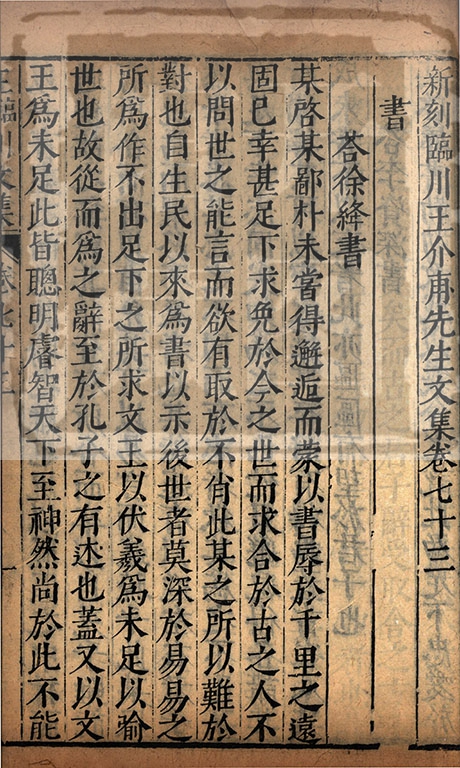 新刻臨川王介甫先生文集卷七十三
書
荅徐絳書
某啓某鄙朴未嘗得邂逅而蒙以書辱於千里之遠
固已幸甚足下求免於今之世而求合於古之人不
以問世之能言而欲有取於不肖此某之所以難於
對也自生民以來爲書以示後世者莫深於易易之
所爲作不出足下之所求文王以伏羲爲未足以喻
世也故從而爲之辭至於孔子之有述也蓋又以文
王爲未足此皆聰明睿智天下至神然尚於此不能